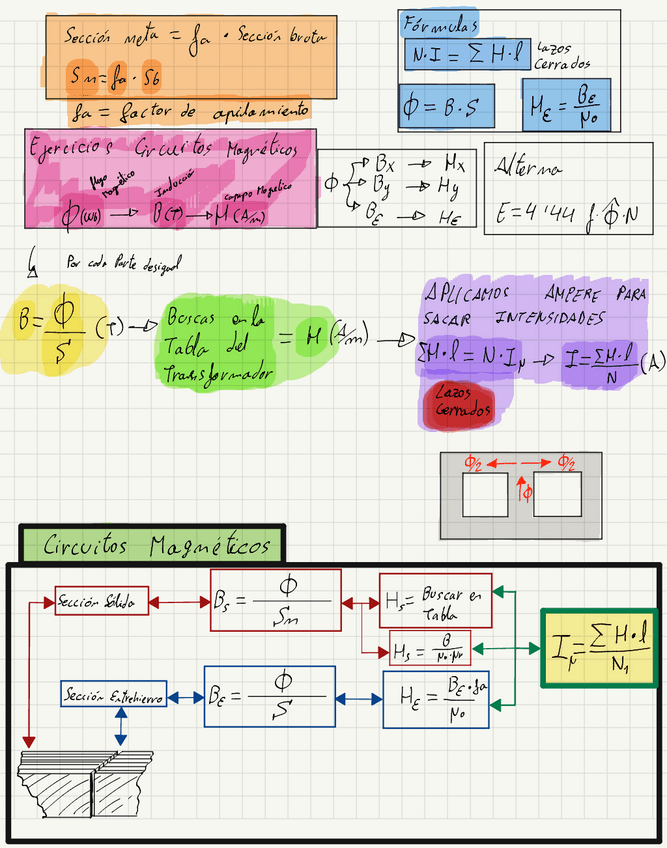 Sección neta = fa · Sección bruta
Sn = fa · Sb
fa = factor de apilamiento
Fórmulas
N·I = Σ H·l Lazos Cerrados
Φ = B·S
H_E = B_E / μ₀
Ejercicios Circuitos Magnéticos
flujo magnético Inducción campo Magnético
Φ(Wb) → B(T) → H(A/m)
Φ → Bx → Hx
By → Hy
B_E → H_E
Alterna
E = 4'44 f·Φ̂·N
Por cada Parte desigual
B = Φ / S (T) →
Buscas en la
Tabla del
Transformador
= H (A/m) →
APLICAMOS AMPERE PARA
SACAR INTENSIDADES
ΣH·l = N·Iμ → I = ΣH·l / N (A)
Lazos
Cerrados
Φ/2 ← → Φ/2
↑Φ
Circuitos Magnéticos
Sección Sólida
B_S = Φ / Sn
H_S = Buscar en
Tabla
H_S = B / μ₀·μr
Iμ = Σ H·l / N₁
Sección Entrehierro
B_E = Φ / S
H_E = B_E·fa / μ₀